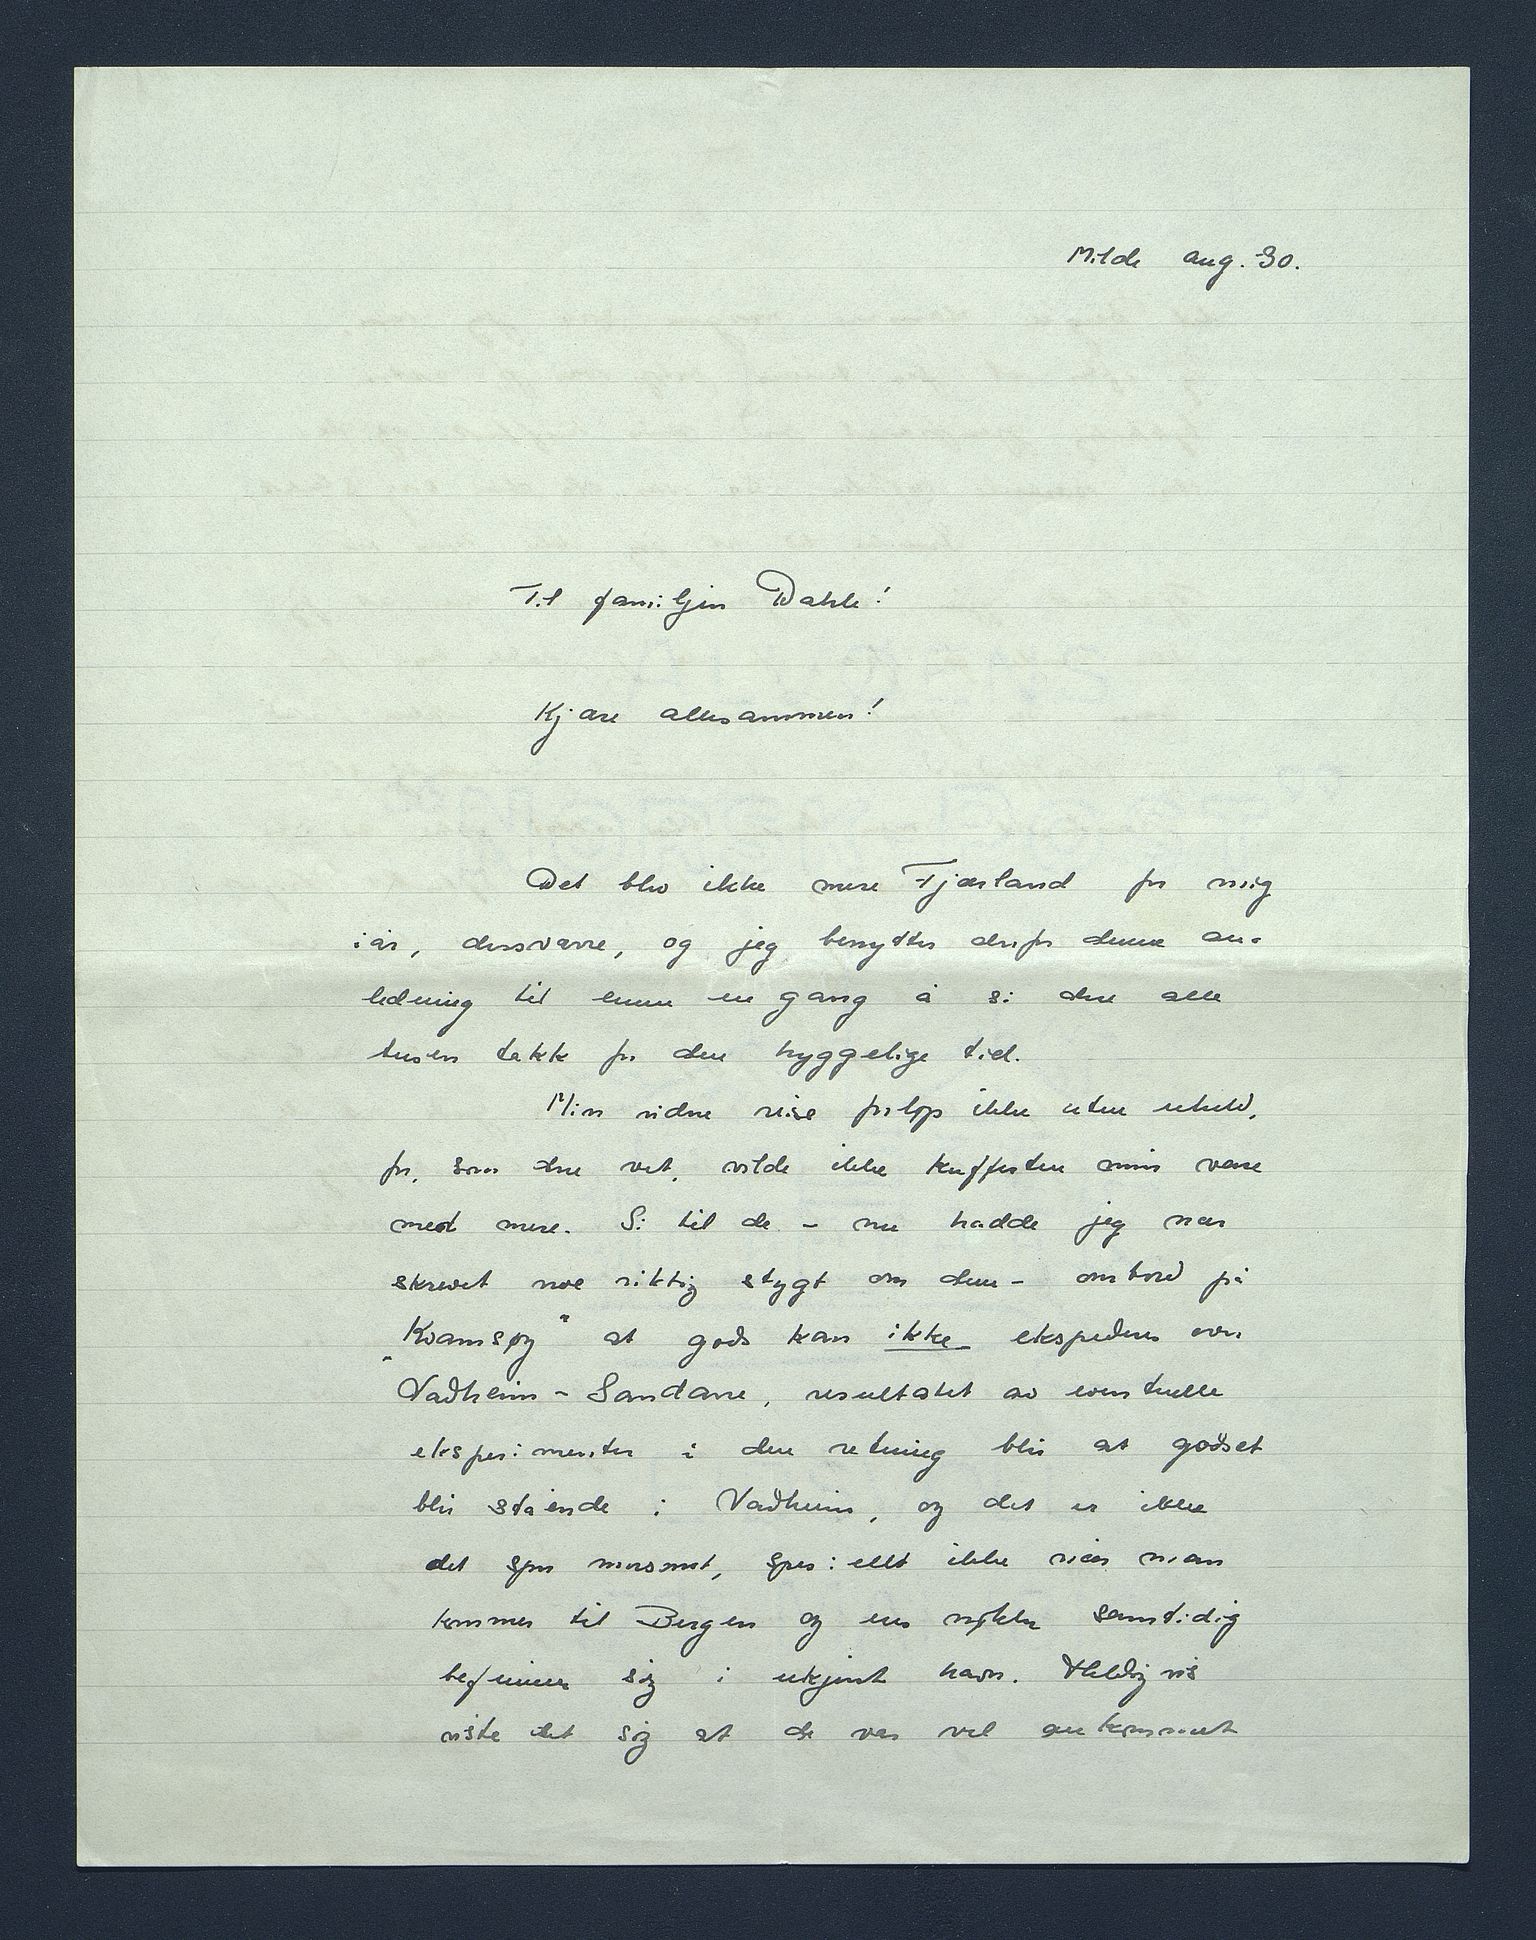 Milde aug. 30.
Til familjen Dahle!
Kjære allesammen!
Det blev ikke mere Fjærland for mig
iår, dessværre, og jeg benytter derfor denne an-
ledning til ennu en gang å si dere alle
tusen takk for den hyggelige tid.
Min videre reise forløp ikke uten uheld,
for, som dere vet, vilde ikke kufferten min være
med mere. Si til de - nu hadde jeg nær
skrevet noe riktig stygt om dem - ombord på
"Kvamsøy" at gods kan ikke ekspederes over
Vadheim - Sandane, resultatet av eventuelle
eksperimenter i den retning blir at godset
blir stående i Vadheim, og det er ikke
det spor morsomt, spesiellt ikke når man
kommer til Bergen og ens nøkler samtidig
befinner sig i ukjent havn. Heldigvis
viste det sig at de var vel ankommet